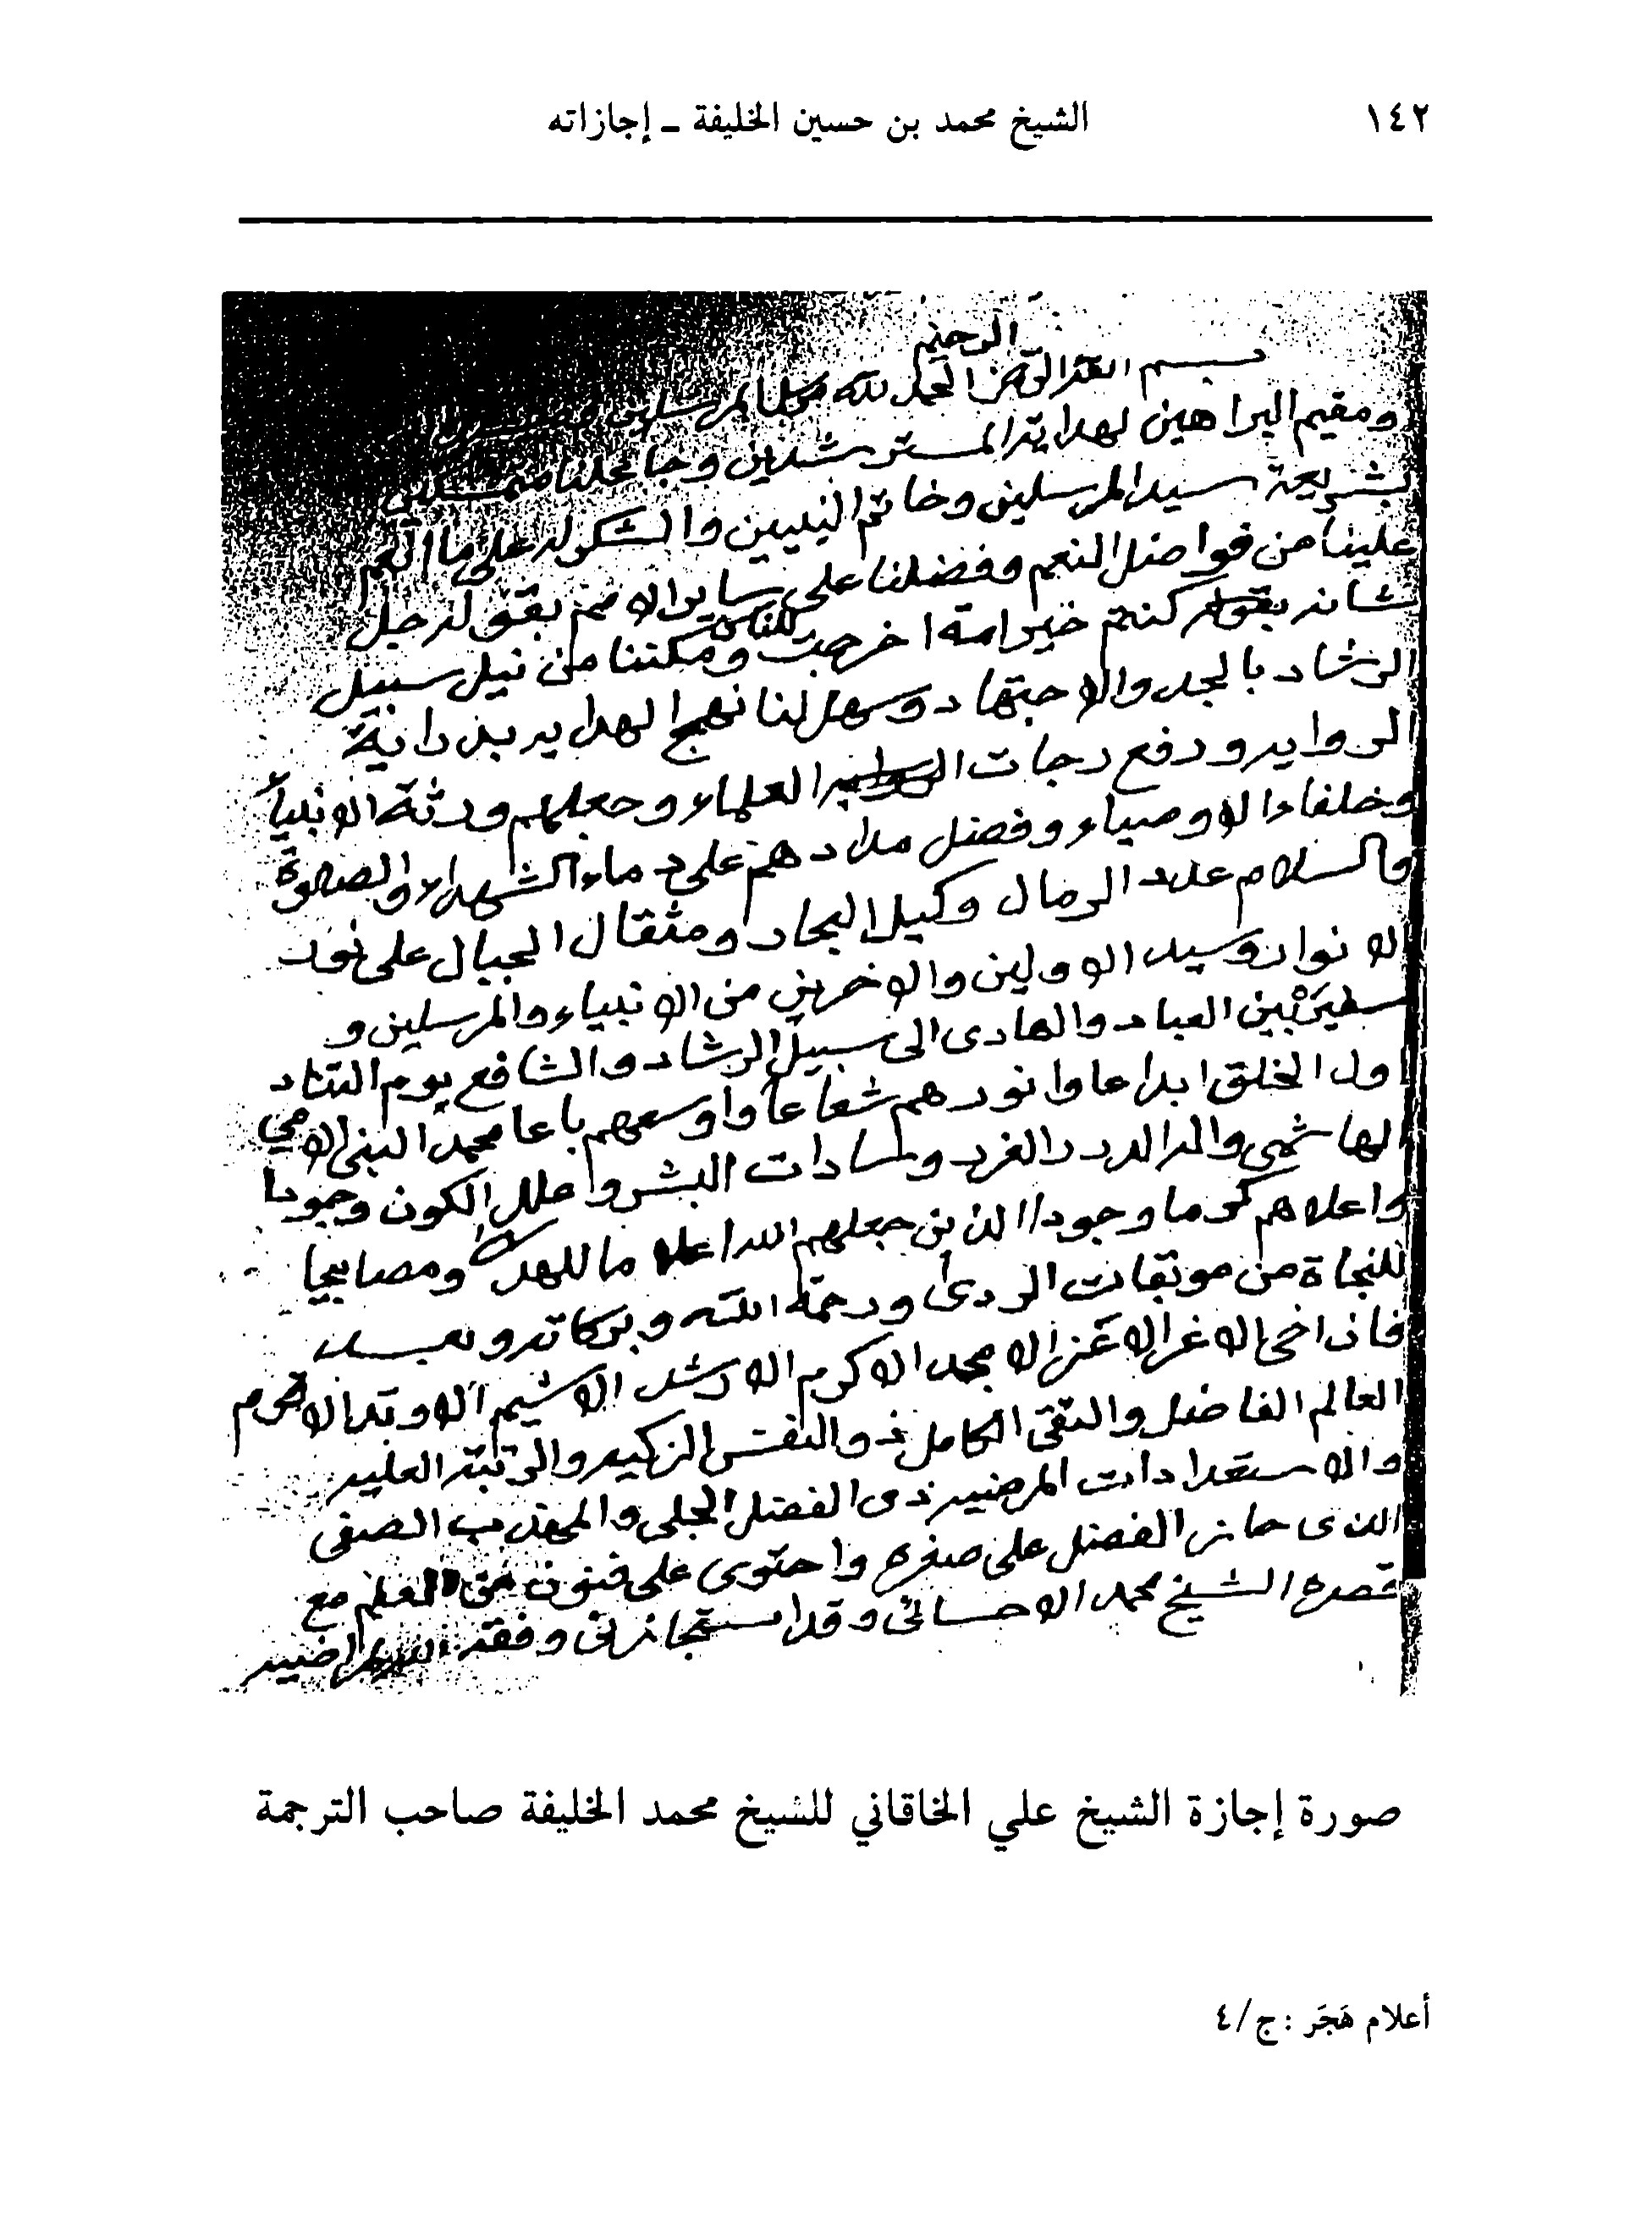 ١٤٢
الشيخ محمد بن حسين الخليفة ـ إجازاته
الرحيم
بسم الله الرحمن الحمد لله المرسلين
ومقيم البراهين لهداية المسترشدين وجاعلنا متمسكين
بشريعة سيد المرسلين وخاتم النبيين والشكر له على ما انعم
علينا من فواضل النعم وفضلنا على ساير الامم بقوله جل
شانه كنتم خير امة اخرجت للناس ومكننا من نيل سبيل
الرشاد بالجد والاجتهاد وسهل لنا نهج الهدايه
الروايه ورفع درجات العلماء وجعلهم ورثة الانبياء
وخلفاء الاوصياء وفضل مدادهم على دماء الشهداء والصلوة
والسلام عدد الرمال وكيل البحار ومثقال الجبال على نور
الانوار وسيد الاولين والاخرين من الانبياء والمرسلين و
سفيره بين العباد والهادى الى سبيل الرشاد والشافع يوم التناد
اول الخلق ابداعا وانورهم شعاعا واوسعهم باعا محمد النبى الامي
الهاشمى واله الدرر الغرر وسادات البشر وعلل الكون وجودا
واعلاهم كرما وجودا الذين جعلهم الله اعلاما للهدى ومصابيحا
للنجاة من موبقات الردى ورحمة الله وبركاته وبعــد
فان اخى الاغر الاعز الامجد الاكرم الارشد الاشيم الاوتد الاقوم
العالم الفاضل والتقى الكامل ذو النفس الزكيه والرتبة العليه
والاستعدادات المرضيه ذى الفضل الجلى والمهذب الصفى
الذى حاز الفضل على صغره واحتوى على فنون من العلم مع
قصره الشيخ محمد الاحسائى وقد استجازنى وفقه الله لمراضيه
صورة إجازة الشيخ علي الخاقاني للشيخ محمد الخليفة صاحب الترجمة
أعلام هَجَر : ج/٤